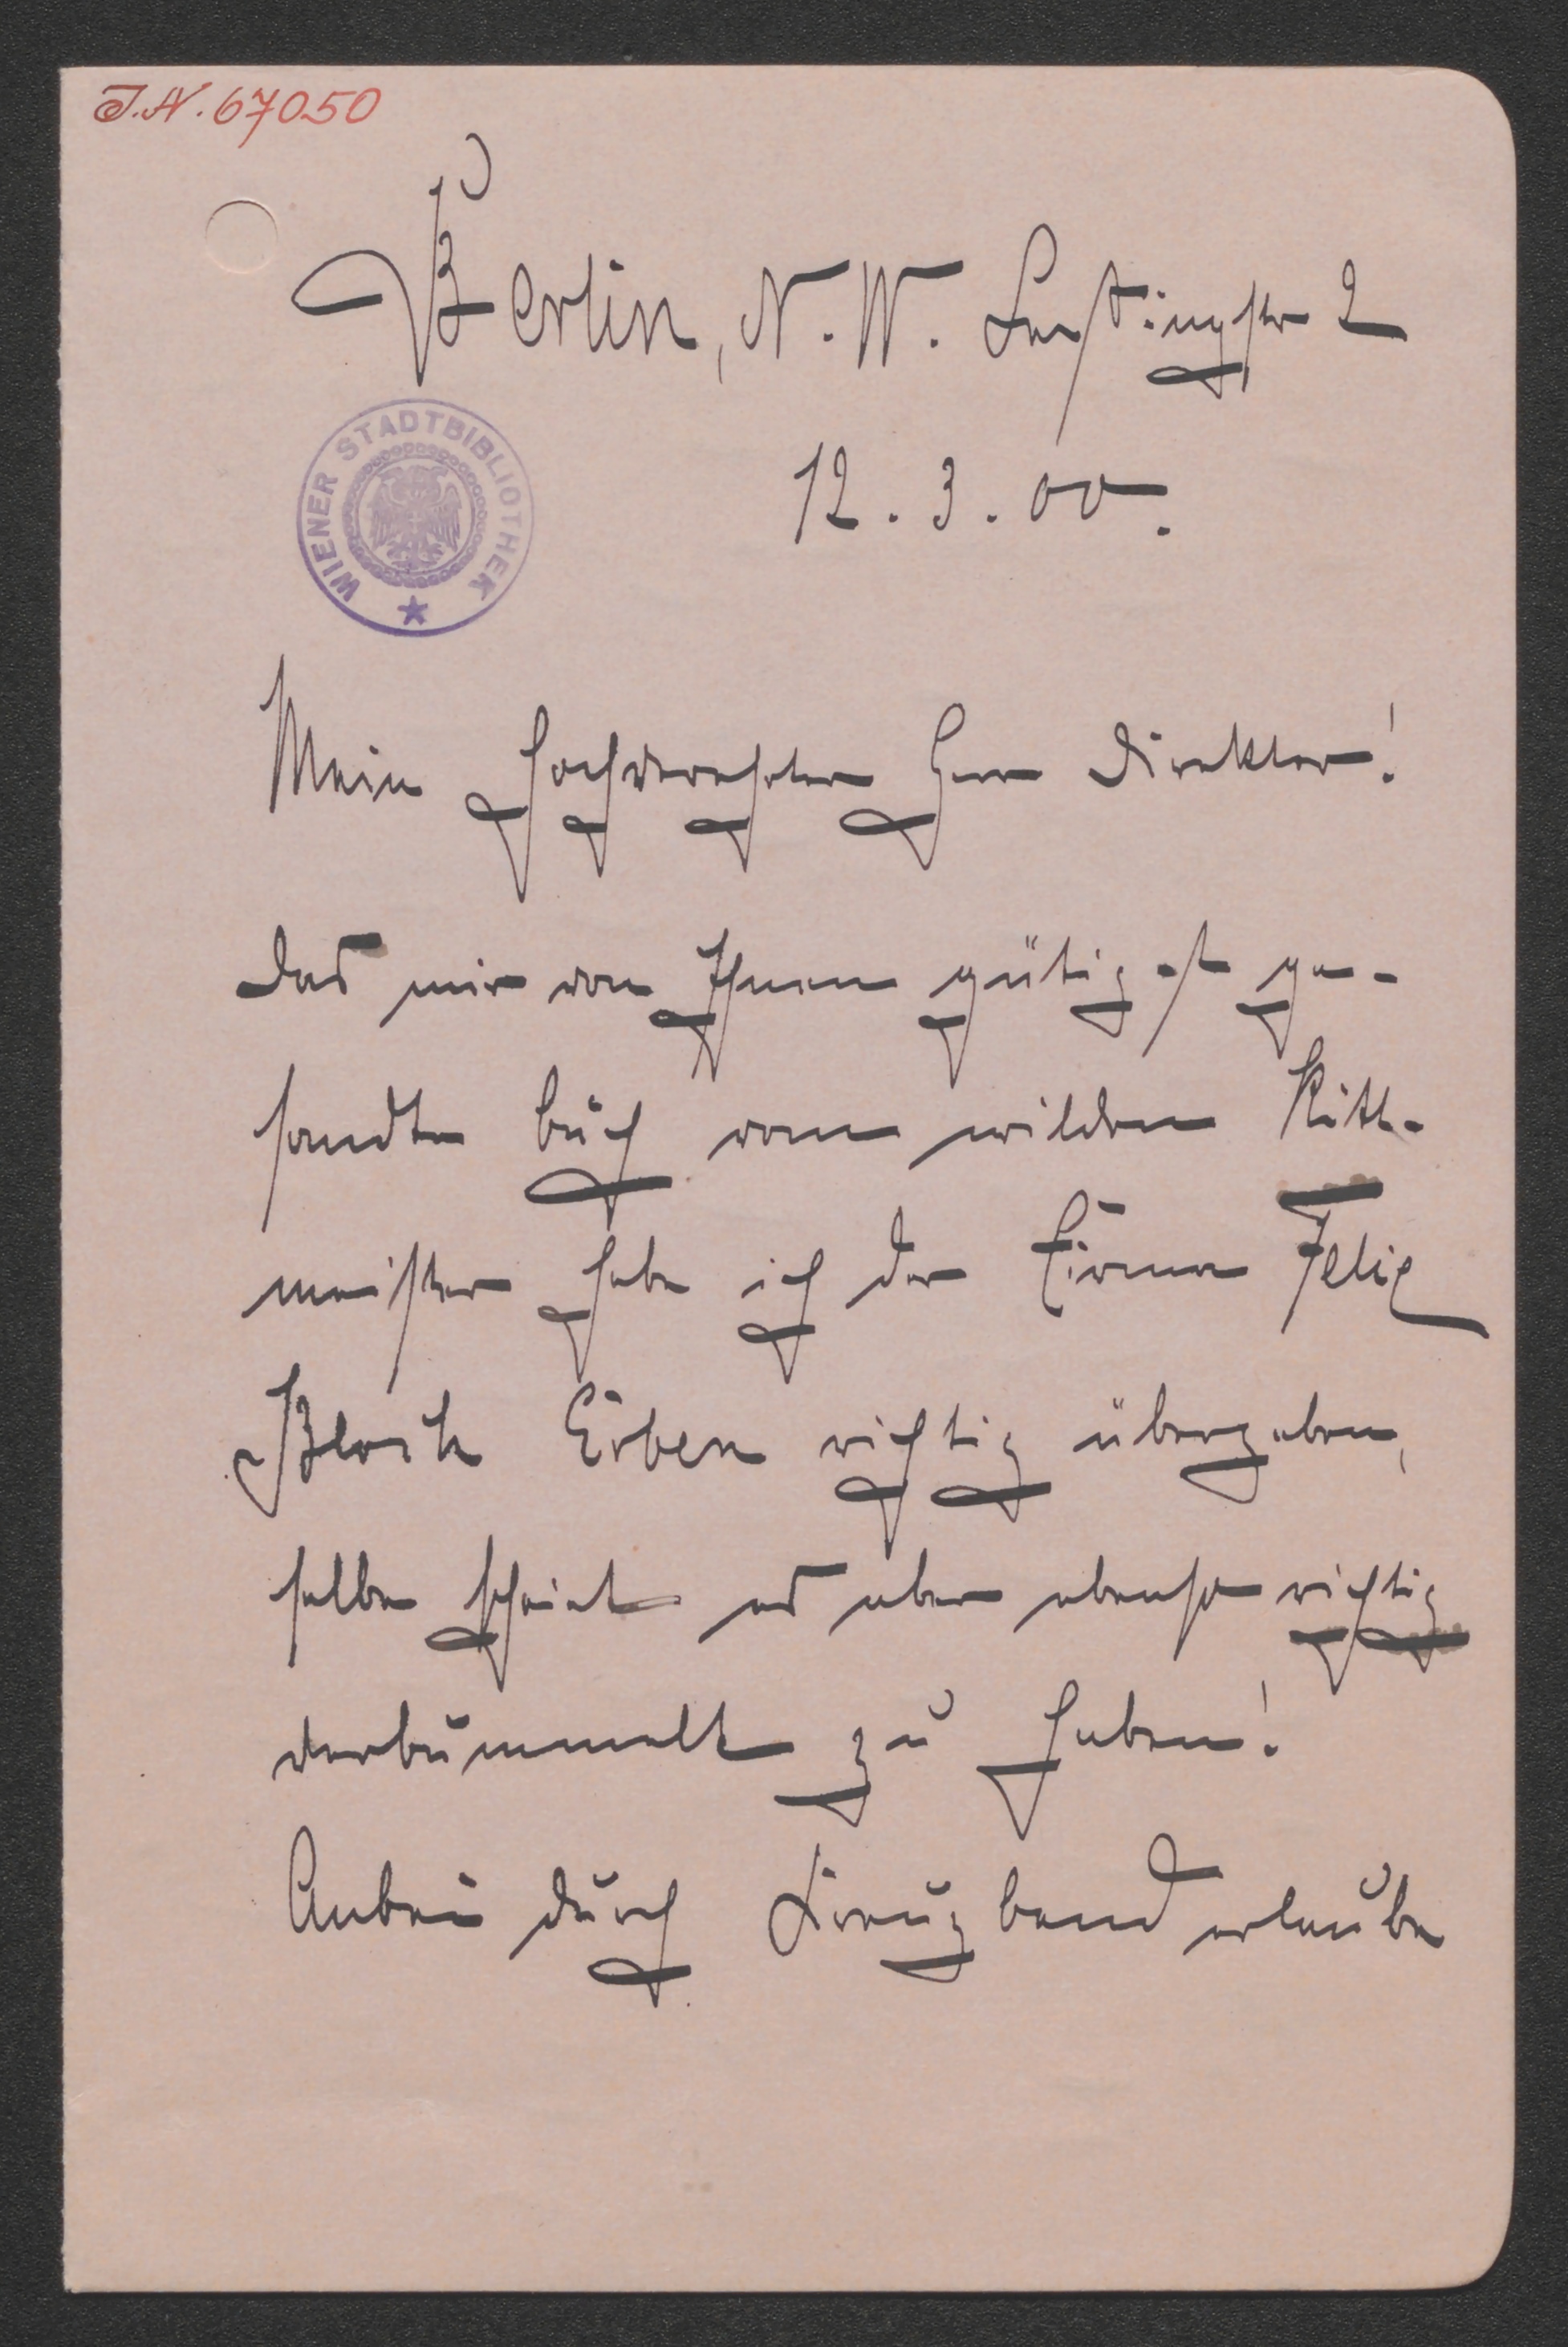 J.N. 67050
Berlin, N. W. Lessingstr 2
WIENER STADTBIBLIOTHEK
12. 3. 00.
Mein hochverehrter Herr Direktor!
Das mir von Ihnen gütigst ge-
sandte Buch vom wilden Ritt-
meister habe ich der Firma Felix
Bloch Erben richtig übergeben,
selbe scheint es aber ebenso richtig
verbummelt zu haben!
Anbei durch Kreuzband erlaube